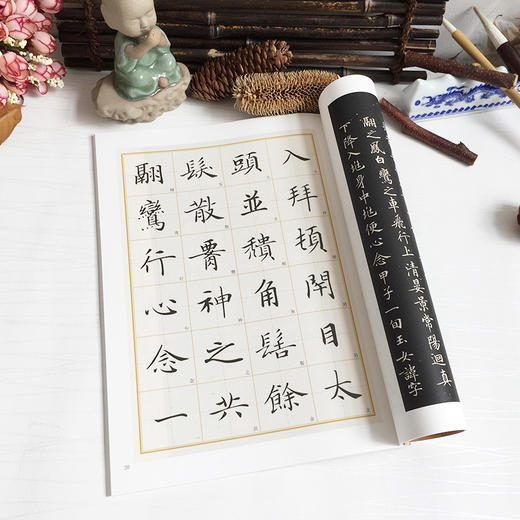 入拜頓閇目太
頭並穨角髻餘
髮散神之共
翮鸞行心念一
20
翮之鳳白鸞之車飛行上清晏景常陽迴真
下降入兆身中兆便心念甲子一旬玉女諱字